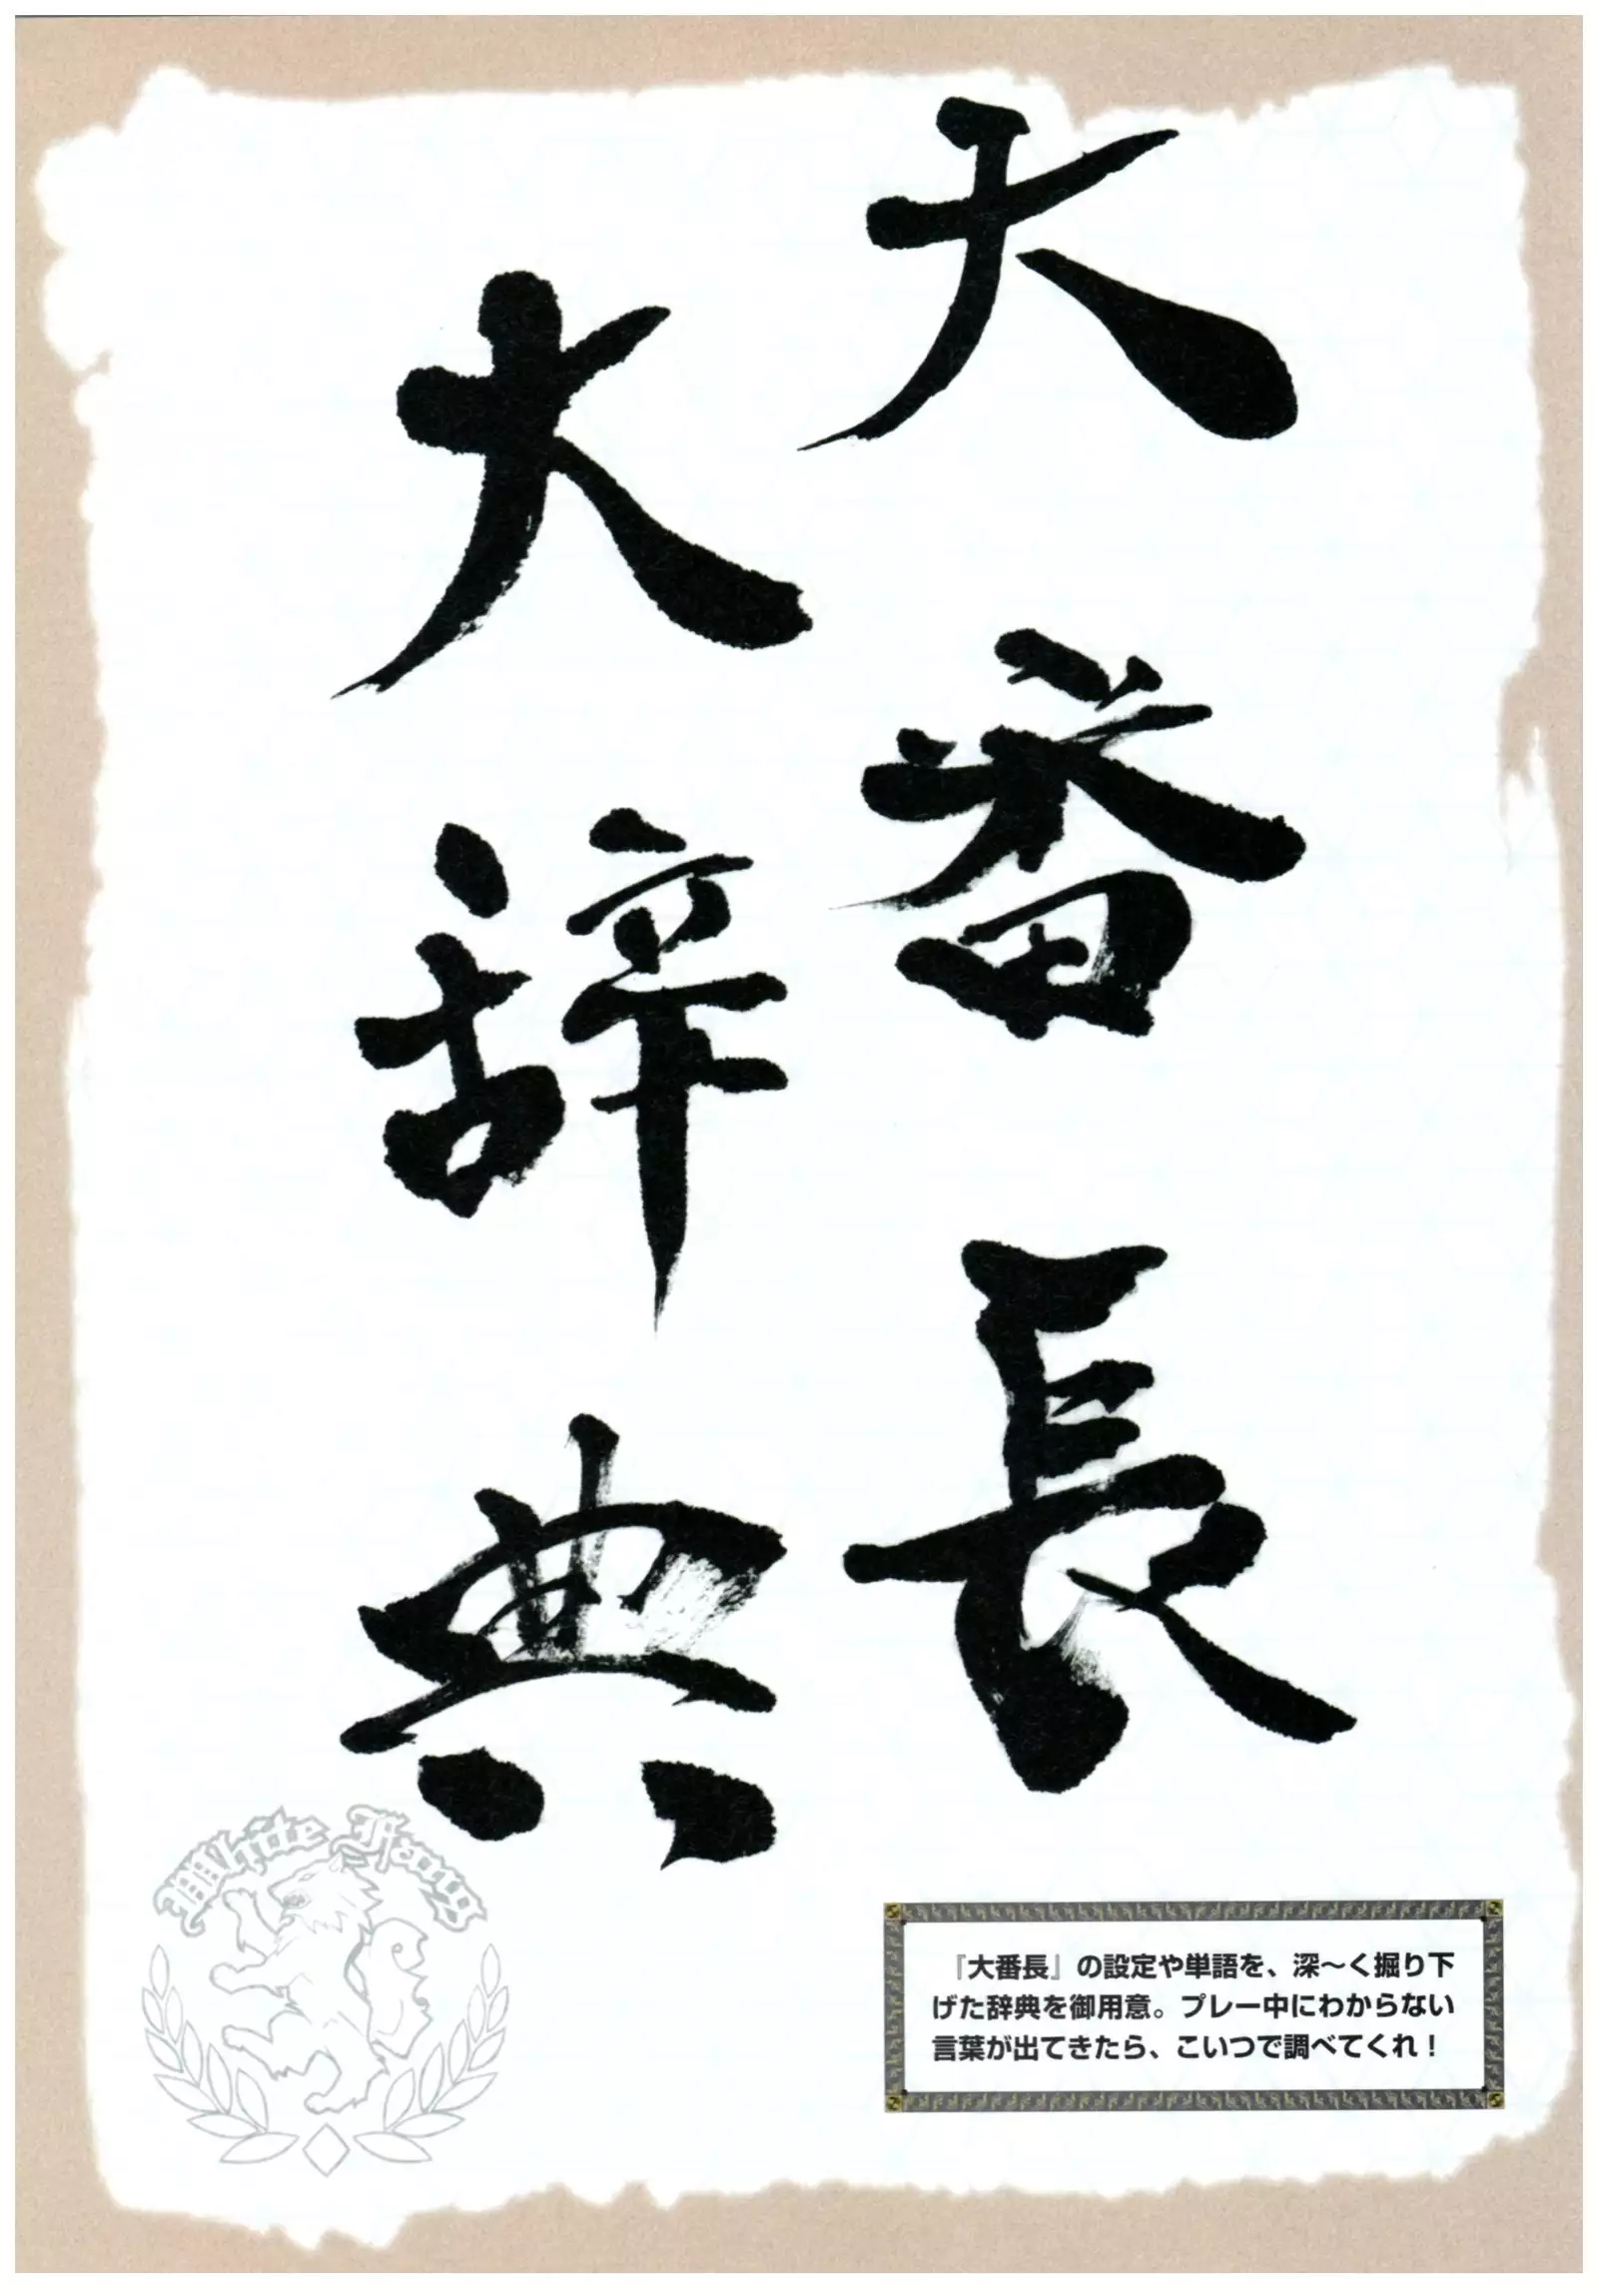 大番長
大辞典
White Fang
『大番長』の設定や単語を、深〜く掘り下
げた辞典を御用意。プレー中にわからない
言葉が出てきたら、こいつで調べてくれ！